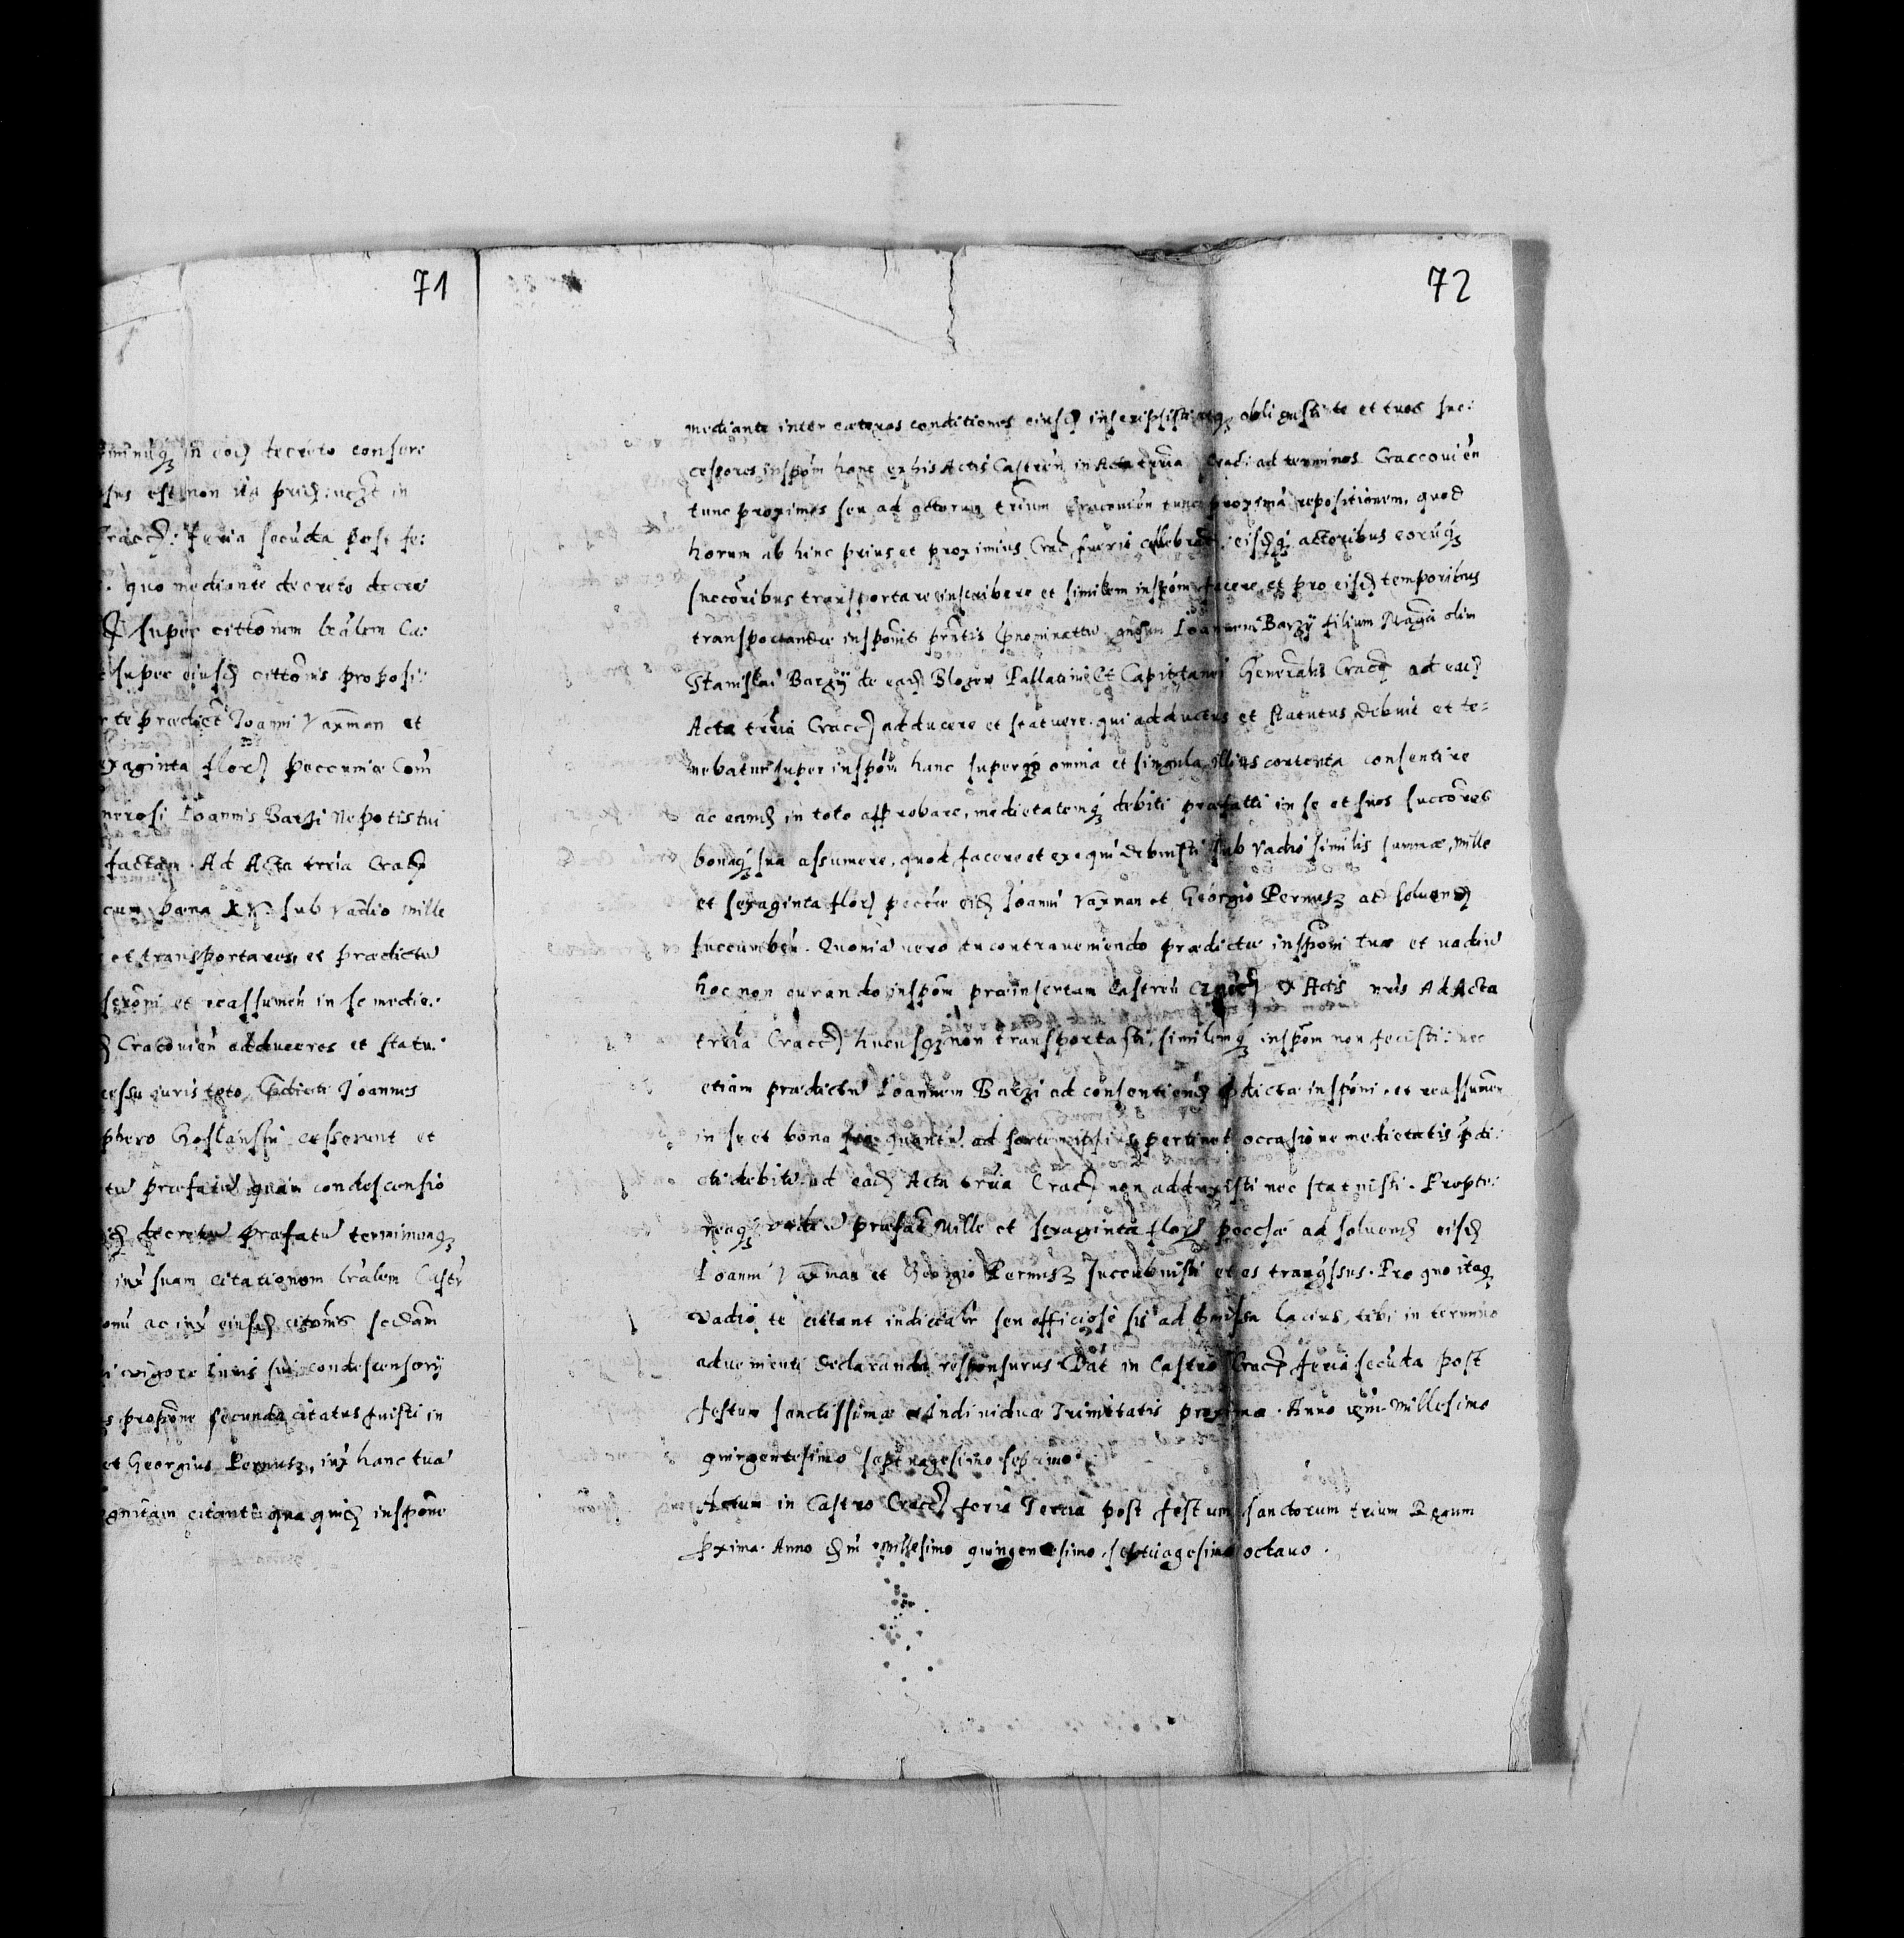 71
in eod decreto consere
est non
Cracȝ: Feria secuda post fe:
quo mediante decreto decre
super cittonem lralem Ca:
super eiusd cittonis proposi:
te prædict Joanni Vaxman et
xaginta flor peccuniæ Com
nerosi Ioannis Barzi Nepotis tui
factam. Ad Acta trria Crac
cum pæna XV sub vadio mille
et transportares, et prædictu
et reassumen in se medie:
Cracouien adduceres et statu:
cessu iuris toto Joannes
phero cesserunt et
tu præfatu condescensio
decretu præfatu terminumq
iux suam citationem lralem Castr
ac iux eiusd citonis secdam
vigore iuris sui condescensorij
propone secunda citatus fuisti in
et Georgius Pernusz, iux hanc tua
citanti qua quid inspone
72
mediante inter cæteras conditiones eiusd inscripsisti obligasti te et tuos suc:
cessores inspom hanc ex his Actis Castren in Acta trria Crac: ad terminos Craccouien
tunc proximos seu ad actorum trrium Cracouien tunc proxima repositionem, quod
horum ab hinc prius et proximius Crac fuerit celebrat: eisdq actoribus eoruq
succoribus transportare inscribere et similem inspom facere, et pro eisd temporibus
transportandæ insponis prntis Ioannem Barzy filium Magci olim
Stanislai Barzy de ead Blozew Pallatini Et Capitanei Generalis Crac ad ead
Acta trria Cracc adducere et statuere. qui adductus et statutus, debuit et te=
nebatur super inspom hanc superq omnia et singula illius contenta consentire
ac eamd in toto approbare, medietatemq debiti præfatti in se et suos succores
bonaq sua assumere, quod facere et exequi debuisti sub vadio similis summæ, mille
et sexaginta flor peccie eisd Joanni Vaxman et Georgio Pernusz ad soluend
succumben. Quonia vero tu contraueniendo prædictæ insponi tuæ et vadiu
hoc non curando inspom præinsertam Castren Cracc ex Actis nris Ad Acta
trria Cracc hucusq non transportasti, similemq inspom non fecisti: nec
etiam prædictu Ioannem Barzi ad consentiend pdictæ insponi, et reassumen
in se et bona sua quantu ad sortem ipsius pertinet occasione medietatis pdi:
cti debiti ad ead Acta trria Crac non adduxisti nec statuisti. Propte:
reaq vadiu præfat Mille et sexaginta flor peccie ad soluend eisd
Ioanni Vaxman et Georgio Pernusz succubuisti et es trangssus. Pro quo itaq
vadio te citant iudicialr seu officiose sis ad pmissa lacius, tibi in termino
aduenienti declaranda responsurus. Dat in Castro Crac feria secuda post
festum sanctissimæ et Indiuiduæ Trinitatis proxima. Anno dni Millesimo
quingentesimo septuagesimo septimo.
Actum in Castro Cracc feria Tercia post festum sanctorum trium Regum
pxima. Anno dni millesimo quingentesimo septuagesimo octauo.